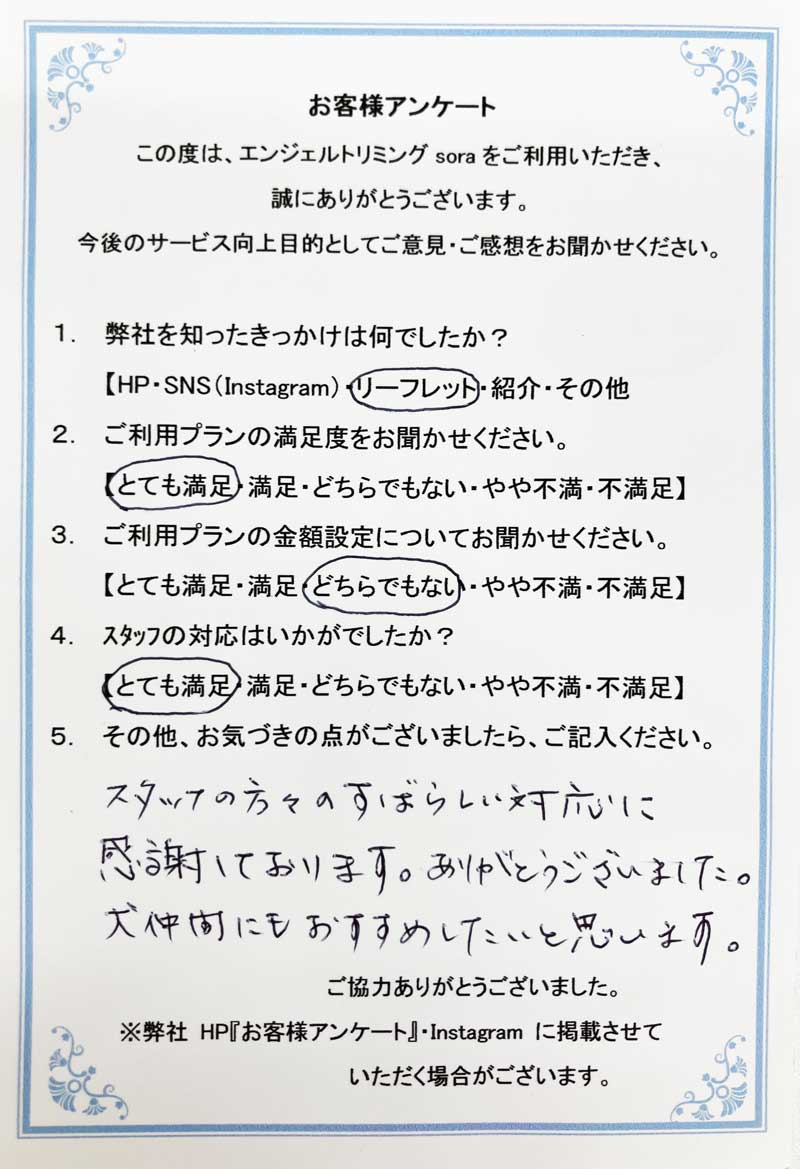 お客様アンケート
この度は、エンジェルトリミング sora をご利用いただき、
誠にありがとうございます。
今後のサービス向上目的としてご意見・ご感想をお聞かせください。
1. 弊社を知ったきっかけは何でしたか？
【HP・SNS（Instagram）・リーフレット・紹介・その他
2. ご利用プランの満足度をお聞かせください。
【とても満足・満足・どちらでもない・やや不満・不満足】
3. ご利用プランの金額設定についてお聞かせください。
【とても満足・満足・どちらでもない・やや不満・不満足】
4. ｽﾀｯﾌの対応はいかがでしたか？
【とても満足・満足・どちらでもない・やや不満・不満足】
5. その他、お気づきの点がございましたら、ご記入ください。
スタッフの方々のすばらしい対応に
感謝しております。ありがとうございました。
犬仲間にもおすすめしたいと思います。
ご協力ありがとうございました。
※弊社 HP『お客様アンケート』・Instagram に掲載させて
いただく場合がございます。